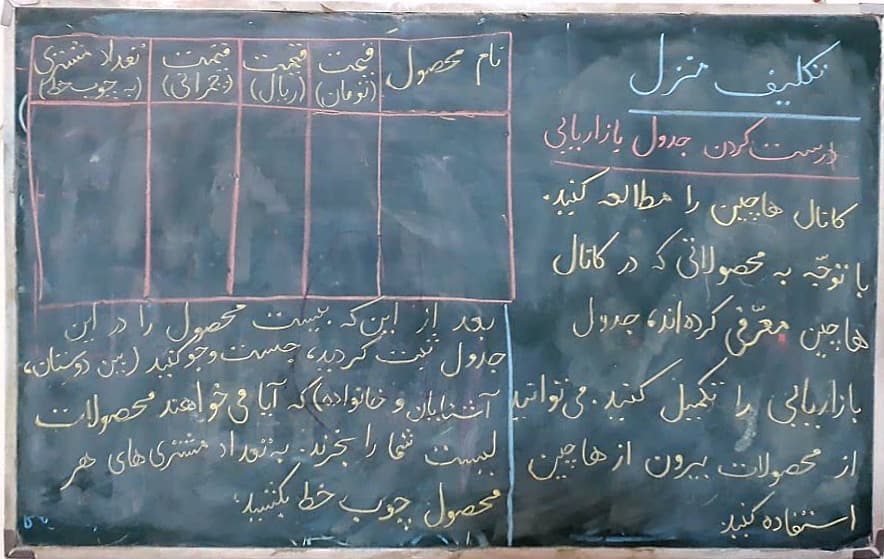 تکلیف منزل
درست کردن جدول بازاریابی
کانال هاچین را مطالعه کنید.
با توجّه به محصولاتی که در کانال
هاچین معرّفی کرده‌اند، جدول
بازاریابی را تکمیل کنید. می‌توانید
از محصولات بیرون از هاچین
استفاده کنید.
نام محصول
قیمت (تومان)
قیمت (ریال)
قیمت
تعداد مشتری (به چوب خط)
بعد از این که بیست محصول را در این
جدول ثبت کردید، جست و جو کنید (بین دوستان،
آشنایان و خانواده) که آیا می‌خواهند محصولات
لیست شما را بخرند. به تعداد مشتری‌های هر
محصول چوب خط بکشید.